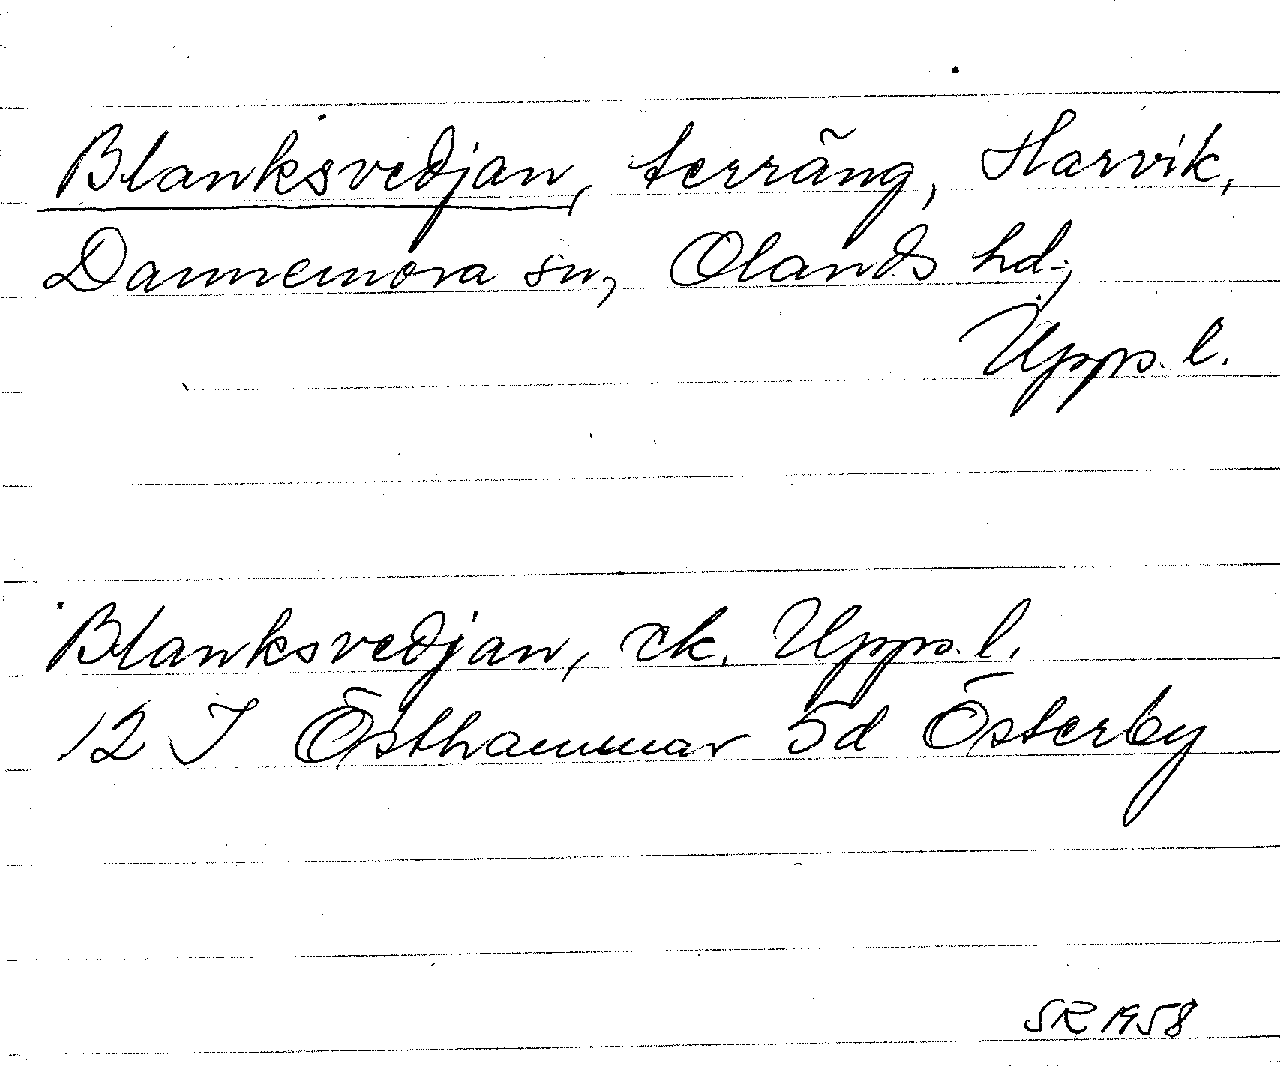 Blanksvedjan, terräng, Harvik,
Dannemora sn, Olands hd.,
Upps. l.
Blanksvedjan, ek. Upps. l.
12 I Östhammar 5d Österby
SR 1958